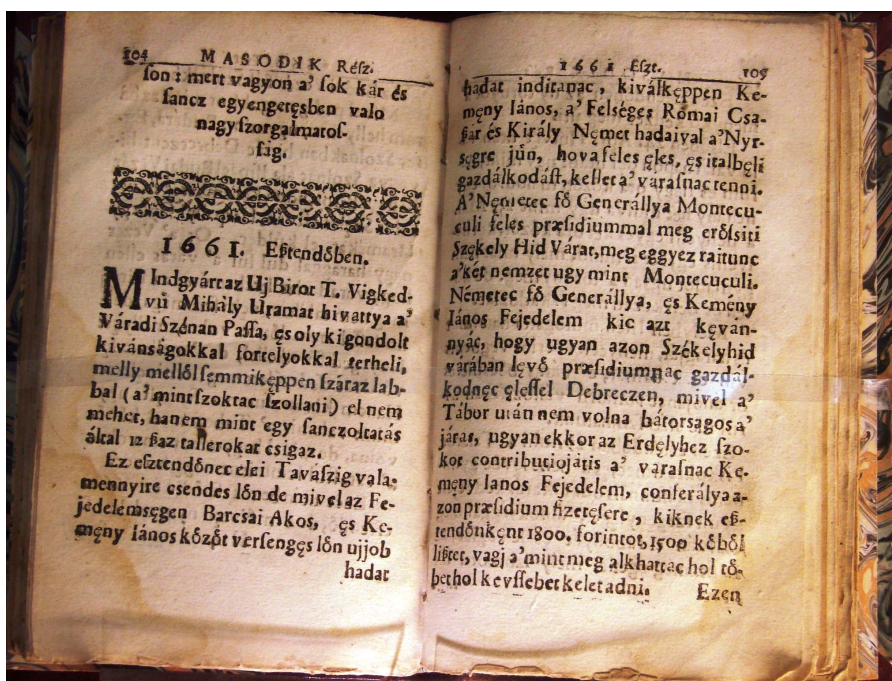 104 MASODIK Réſz.
ſon: mert vagyon a' ſok kár és
ſancz egyengetęsben valo
nagy ſzorgalmatoſ-
ſig.
1661. Eßtendőben.
MIndgyárt az Uj Birot T. Vigked-
vű Mihály Uramat hivattya a'
Váradi Szénan Paſſa, ęs oly ki gondolt
kivánságokkal fortelyokkal terheli,
melly mellől ſemmikęppen ſzáraz lab-
bal (a' mint ſzoktac ſzollani) el nem
mehet, hanem mint egy ſanczoltatás
által 12 ßaz tallerokat csigaz.
Ez eſztendőnec elei Tavaſzig vala-
mennyire csendes lőn de mivel az Fe-
jedelemsęgen Barcsai Akos, ęs Ke-
męny Iános kőzőt verſengęs lőn ujjob
hadat
1661 Eſzt. 105
hadat inditanac, kiválkęppen Ke-
męny Iános, a' Felséges Romai Csa-
ßár és Király Nęmet hadaival a' Nyr-
sęgre jűn, hova feles ęles, ęs italbęli
gazdálkodáſt, kellet a' varaſnac tenni.
A' Nęmetec fő Generállya Montecu-
culi feles præſidiummal meg erőſsiti
Szękely Hid Várat, meg eggyez raitunc
a' két nemzet ugy mint Montecuculi.
Németec fő Generállya, ęs Kemény
Iános Fejedelem kic azt kęván-
nyác, hogy ugyan azon Székelyhid
várában lęvő præſidiumnac gazdál-
kodnęc ęleſſel Debreczen, mivel a'
Tábor után nem volna bátorsagos a'
járas, ugyan ekkor az Erdęlyhez ſzo-
kot contributiojátis a' varaſnac Ke-
męny Ianos Fejedelem, conferálya a-
zon præſidium fizetęſere, kiknek eß-
tendőnkęnt 1800. forintot, 1500 kőből
lißtet, vagj a' mint meg alkhattac hol tő-
bet hol kevſſebet kelet adni. Ezen